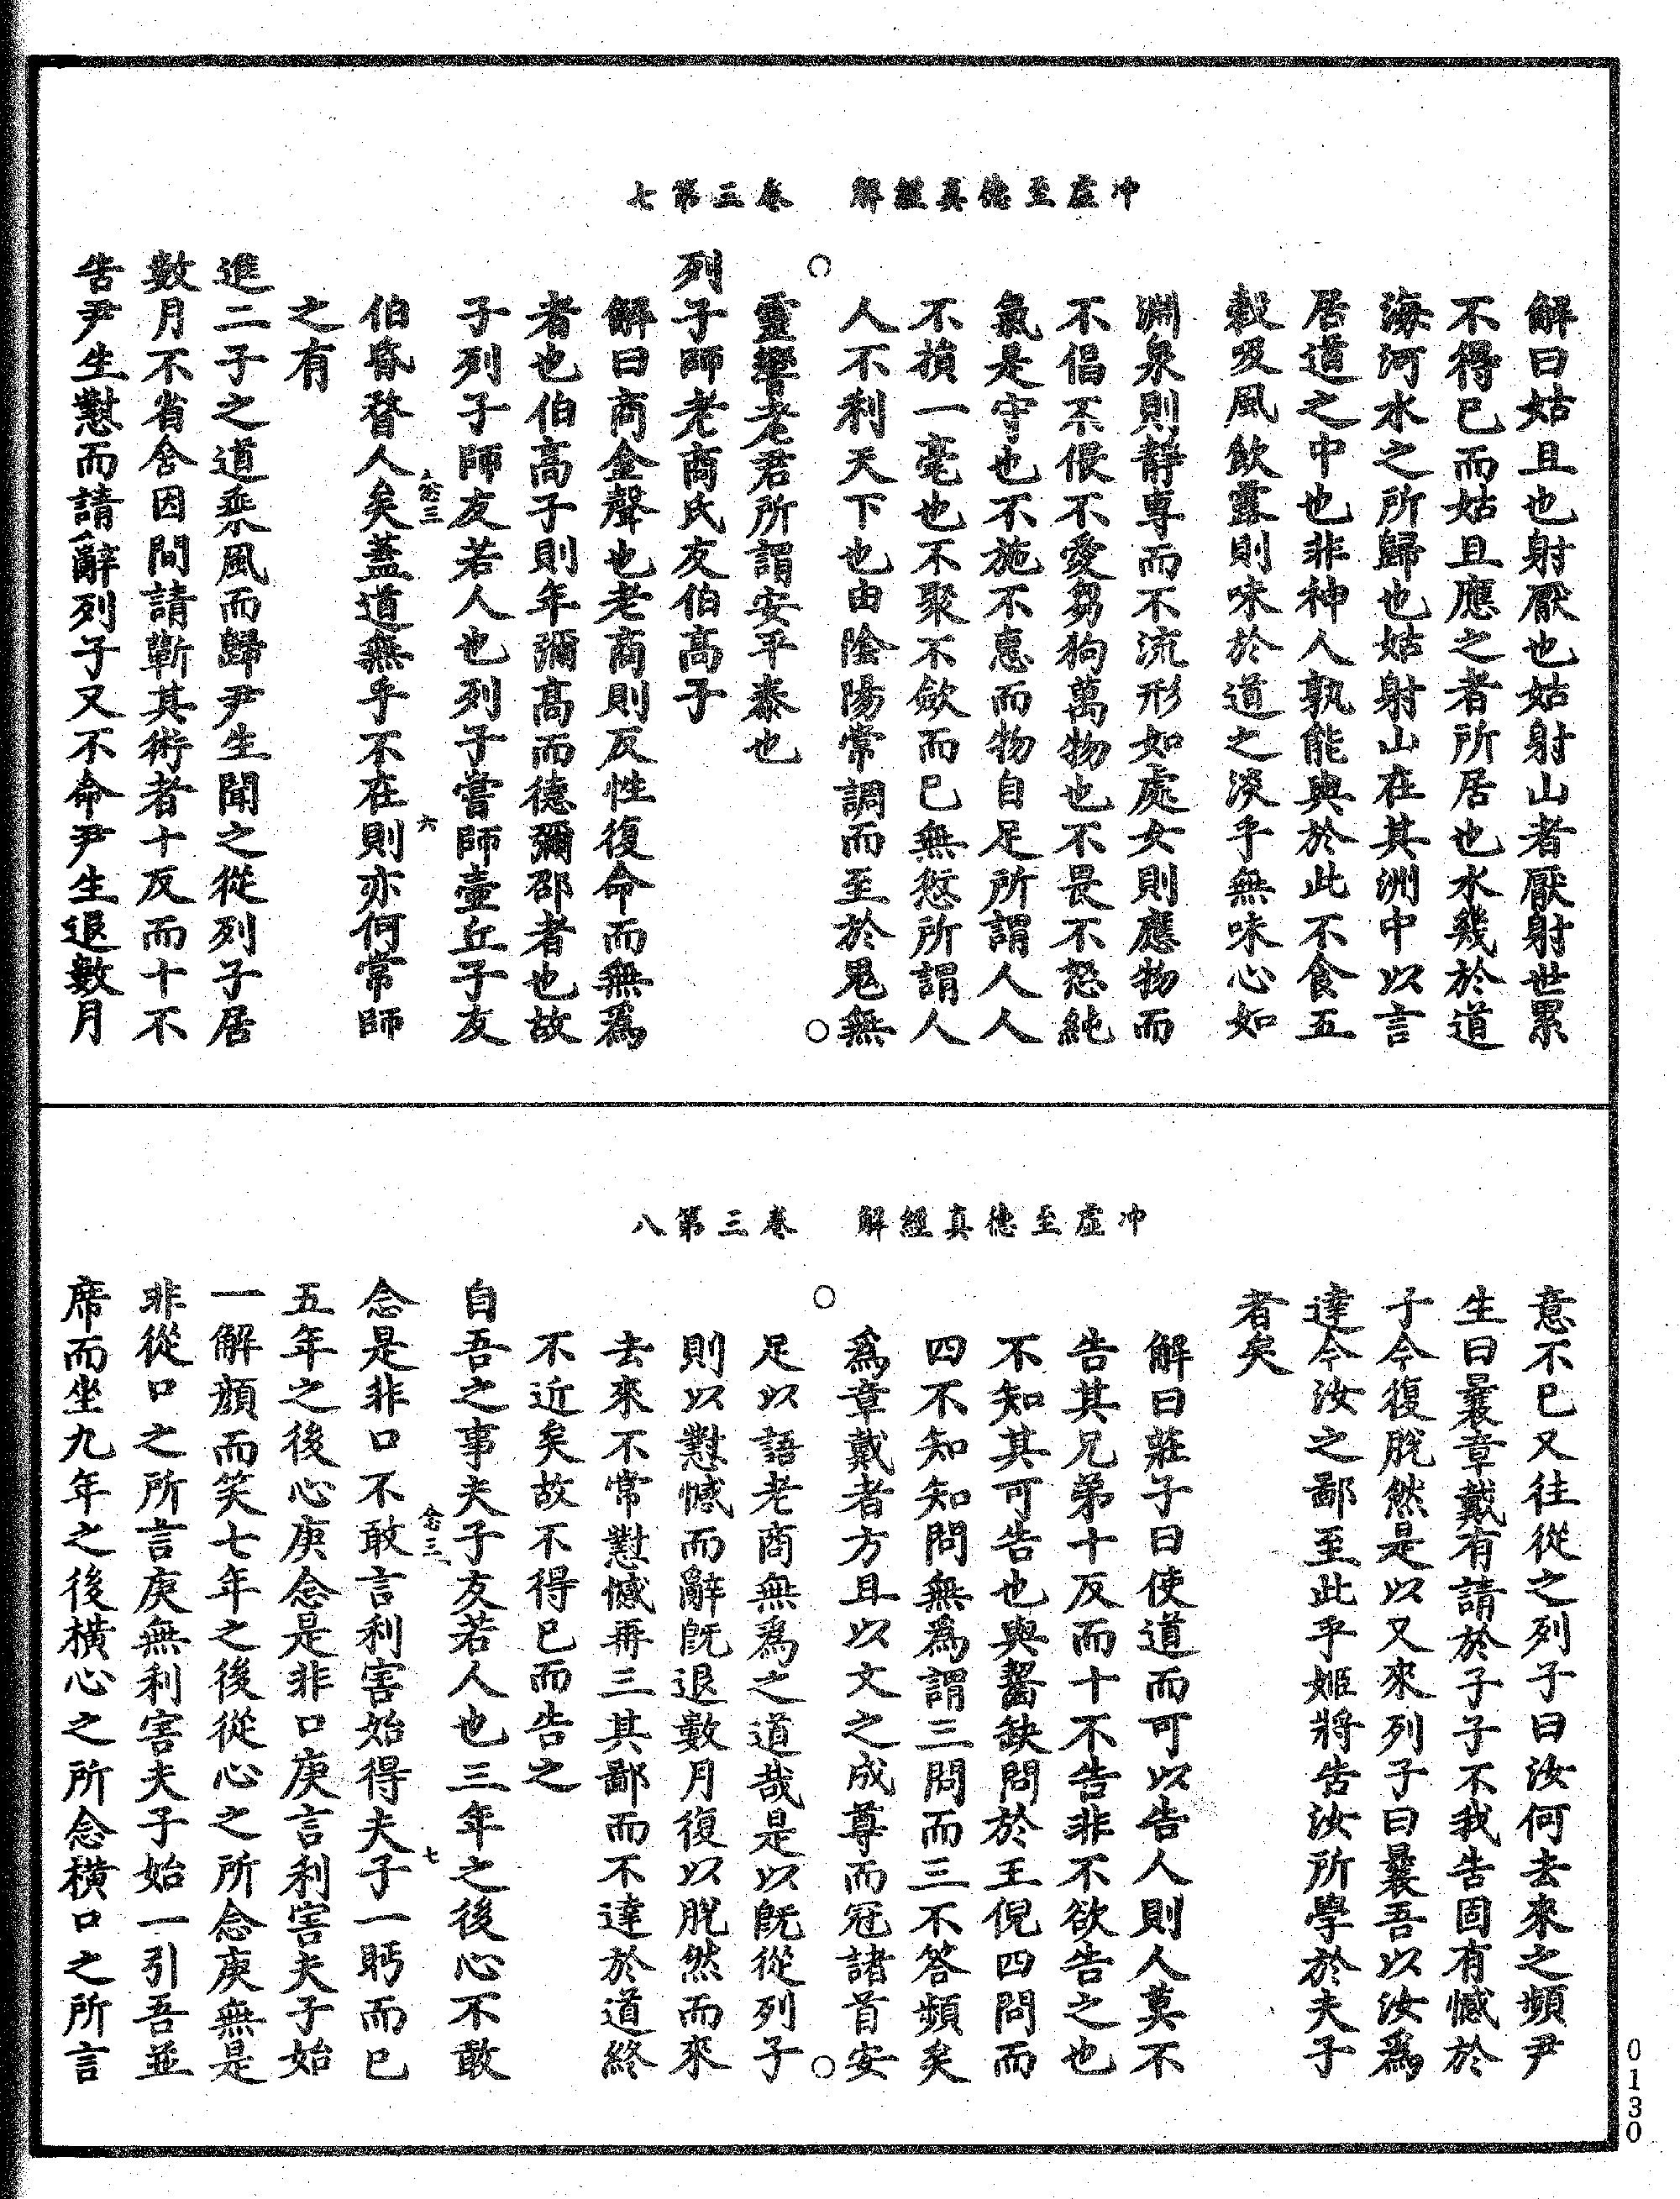 冲虛至德真經解　卷三第七
解曰姑且也射厭也姑射山者厭射世累
不得已而姑且應之者所居也水幾於道
海河水之所歸也姑射山在其洲中以言
居道之中也非神人孰能與於此不食五
穀吸風飲露則味於道之淡乎無味心如
淵泉則靜專而不流形如處女則應物而
不倡不偎不愛芻狗萬物也不畏不怒純
氣是守也不施不惠而物自足所謂人人
不損一毫也不聚不斂而已無愆所謂人
人不利天下也由陰陽常調而至於鬼無
靈響老君所謂安平泰也
列子師老商氏友伯高子
解曰商金聲也老商則反性復命而無為
者也伯高子則年彌高而德彌卲者也故
子列子師友若人也列子嘗師壺丘子友
伯昏瞀人矣蓋道無乎不在則亦何常師
之有
進二子之道乘風而歸尹生聞之從列子居
數月不省舍因間請蘄其術者十反而十不
告尹生懟而請辭列子又不命尹生退數月
念三
六
冲虛至德真經解　卷三第八
意不已又往從之列子曰汝何去來之頻尹
生曰曩章戴有請於子子不我告固有憾於
子今復脫然是以又來列子曰曩吾以汝為
達今汝之鄙至此乎姬將告汝所學於夫子
者矣
解曰莊子曰使道而可以告人則人莫不
告其兄弟十反而十不告非不欲告之也
不知其可告也與齧缺問於王倪四問而
四不知知問無為謂三問而三不答頻矣
為章戴者方且以文之成尊而冠諸首安
足以語老商無為之道哉是以既從列子
則以懟憾而辭既退數月復以脫然而來
去來不常懟憾再三其鄙而不達於道終
不近矣故不得已而告之
自吾之事夫子友若人也三年之後心不敢
念是非口不敢言利害始得夫子一眄而已
五年之後心庚念是非口庚言利害夫子始
一解顏而笑七年之後從心之所念庚無是
非從口之所言庚無利害夫子始一引吾並
席而坐九年之後橫心之所念橫口之所言
念三
七
0130